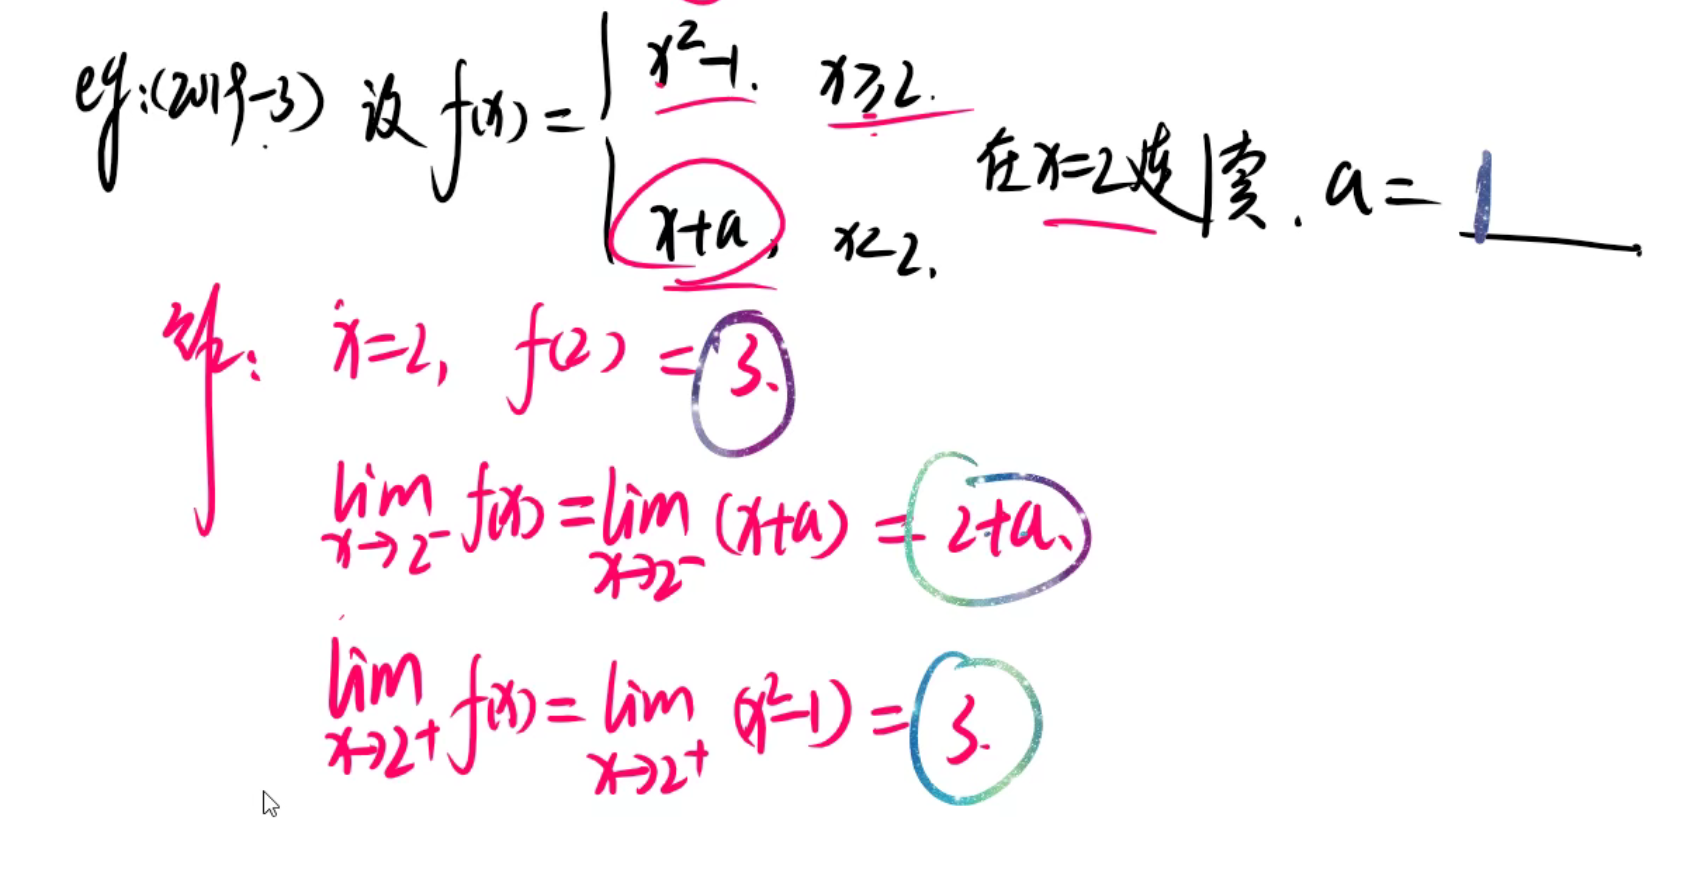 eg:(2019-3) 设 f(x) = { x²-1, x≥2.
x+a, x<2. 在x=2连续. a= 1
解: x=2, f(2) = 3.
lim x→2⁻ f(x) = lim x→2⁻ (x+a) = 2+a.
lim x→2⁺ f(x) = lim x→2⁺ (x²-1) = 3.